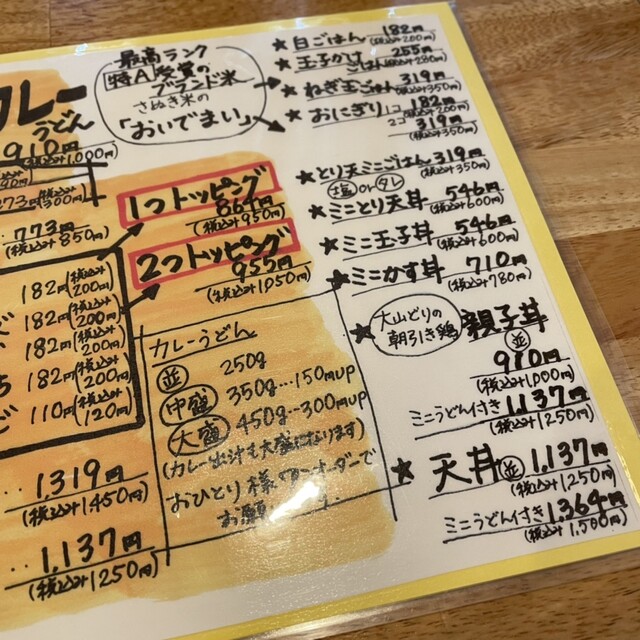 カレー
うどん
910円
(税込み1,000円)
273円(税込み300円)
773円
(税込み850円)
182円(税込み200円)
182円(税込み200円)
182円(税込み200円)
182円(税込み200円)
110円(税込み120円)
1,319円
(税込み1450円)
1,137円
(税込み1250円)
最高ランク
特A受賞の
ブランド米
さぬき米の
「おいでまい」
1つトッピング
864円
(税込み950円)
2つトッピング
955円
(税込み1050円)
カレーうどん
並 250g
中盛 350g…150円up
大盛 450g…300円up
(カレー出汁も大盛になります)
おひとり様ワンオーダーで
お願
★白ごはん 182円
(税込み200円)
★玉子かけごはん 255円
(税込み280円)
★ねぎ玉ごはん 319円
(税込み350円)
★おにぎり 1コ 182円
(税込み200円)
2コ 319円
(税込み350円)
★とり天ミニごはん 319円
塩orタレ (税込み350円)
★ミニとり天丼 546円
(税込み600円)
★ミニ玉子丼 546円
(税込み600円)
★ミニかす丼 710円
(税込み780円)
★大山どりの
朝引き鶏
親子丼
並
910円
(税込み1,000円)
ミニうどん付き 1,137円
(税込み1250円)
★天丼 並 1,137円
(税込み1250円)
ミニうどん付き 1,364円
(税込み1,500円)